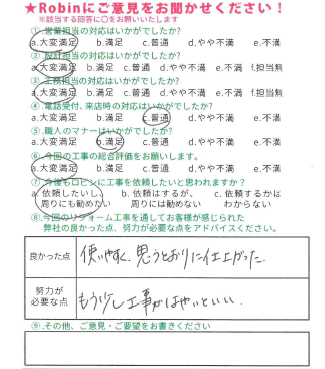 ★Robinにご意見をお聞かせください！
※該当する回答に〇をお願いいたします
① 営業担当の対応はいかがでしたか?
a.大変満足 b.満足 c.普通 d.やや不満 e.不満
② 設計担当の対応はいかがでしたか?
a.大変満足 b.満足 c.普通 d.やや不満 e.不満 f.担当無
③ 工務担当の対応はいかがでしたか?
a.大変満足 b.満足 c.普通 d.やや不満 e.不満 f.担当無
④ 電話受付、来店時の対応はいかがでしたか?
a.大変満足 b.満足 c.普通 d.やや不満 e.不満
⑤ 職人のマナーはいかがでしたか?
a.大変満足 b.満足 c.普通 d.やや不満 e.不満
⑥ 今回の工事の総合評価をお願いします。
a.大変満足 b.満足 c.普通 d.やや不満 e.不満
⑦ 今後もロビンに工事を依頼したいと思われますか?
a. 依頼したいし、 b. 依頼はするが、 c. 依頼するかは
周りにも勧めたい 周りには勧めない わからない
⑧.今回のリフォーム工事を通してお客様が感じられた
弊社の良かった点、努力が必要な点をアドバイスください。
良かった点 使いやすく、思うとおりに仕上がった.
努力が
必要な点 もう少し工事がはやいといい.
⑨ .その他、ご意見・ご要望をお書きください